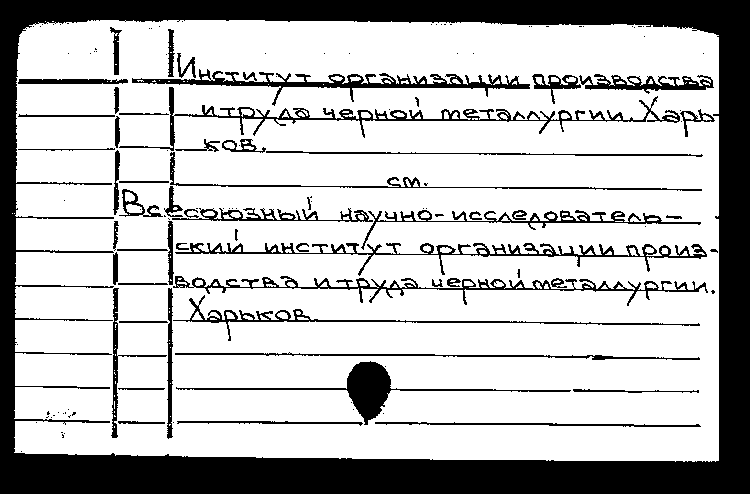 Институт организации производства
и труда черной металлургии. Харь-
ков.
см.
Всесоюзный научно-исследователь-
ский институт организации произ-
водства и труда черной металлургии.
Харьков.